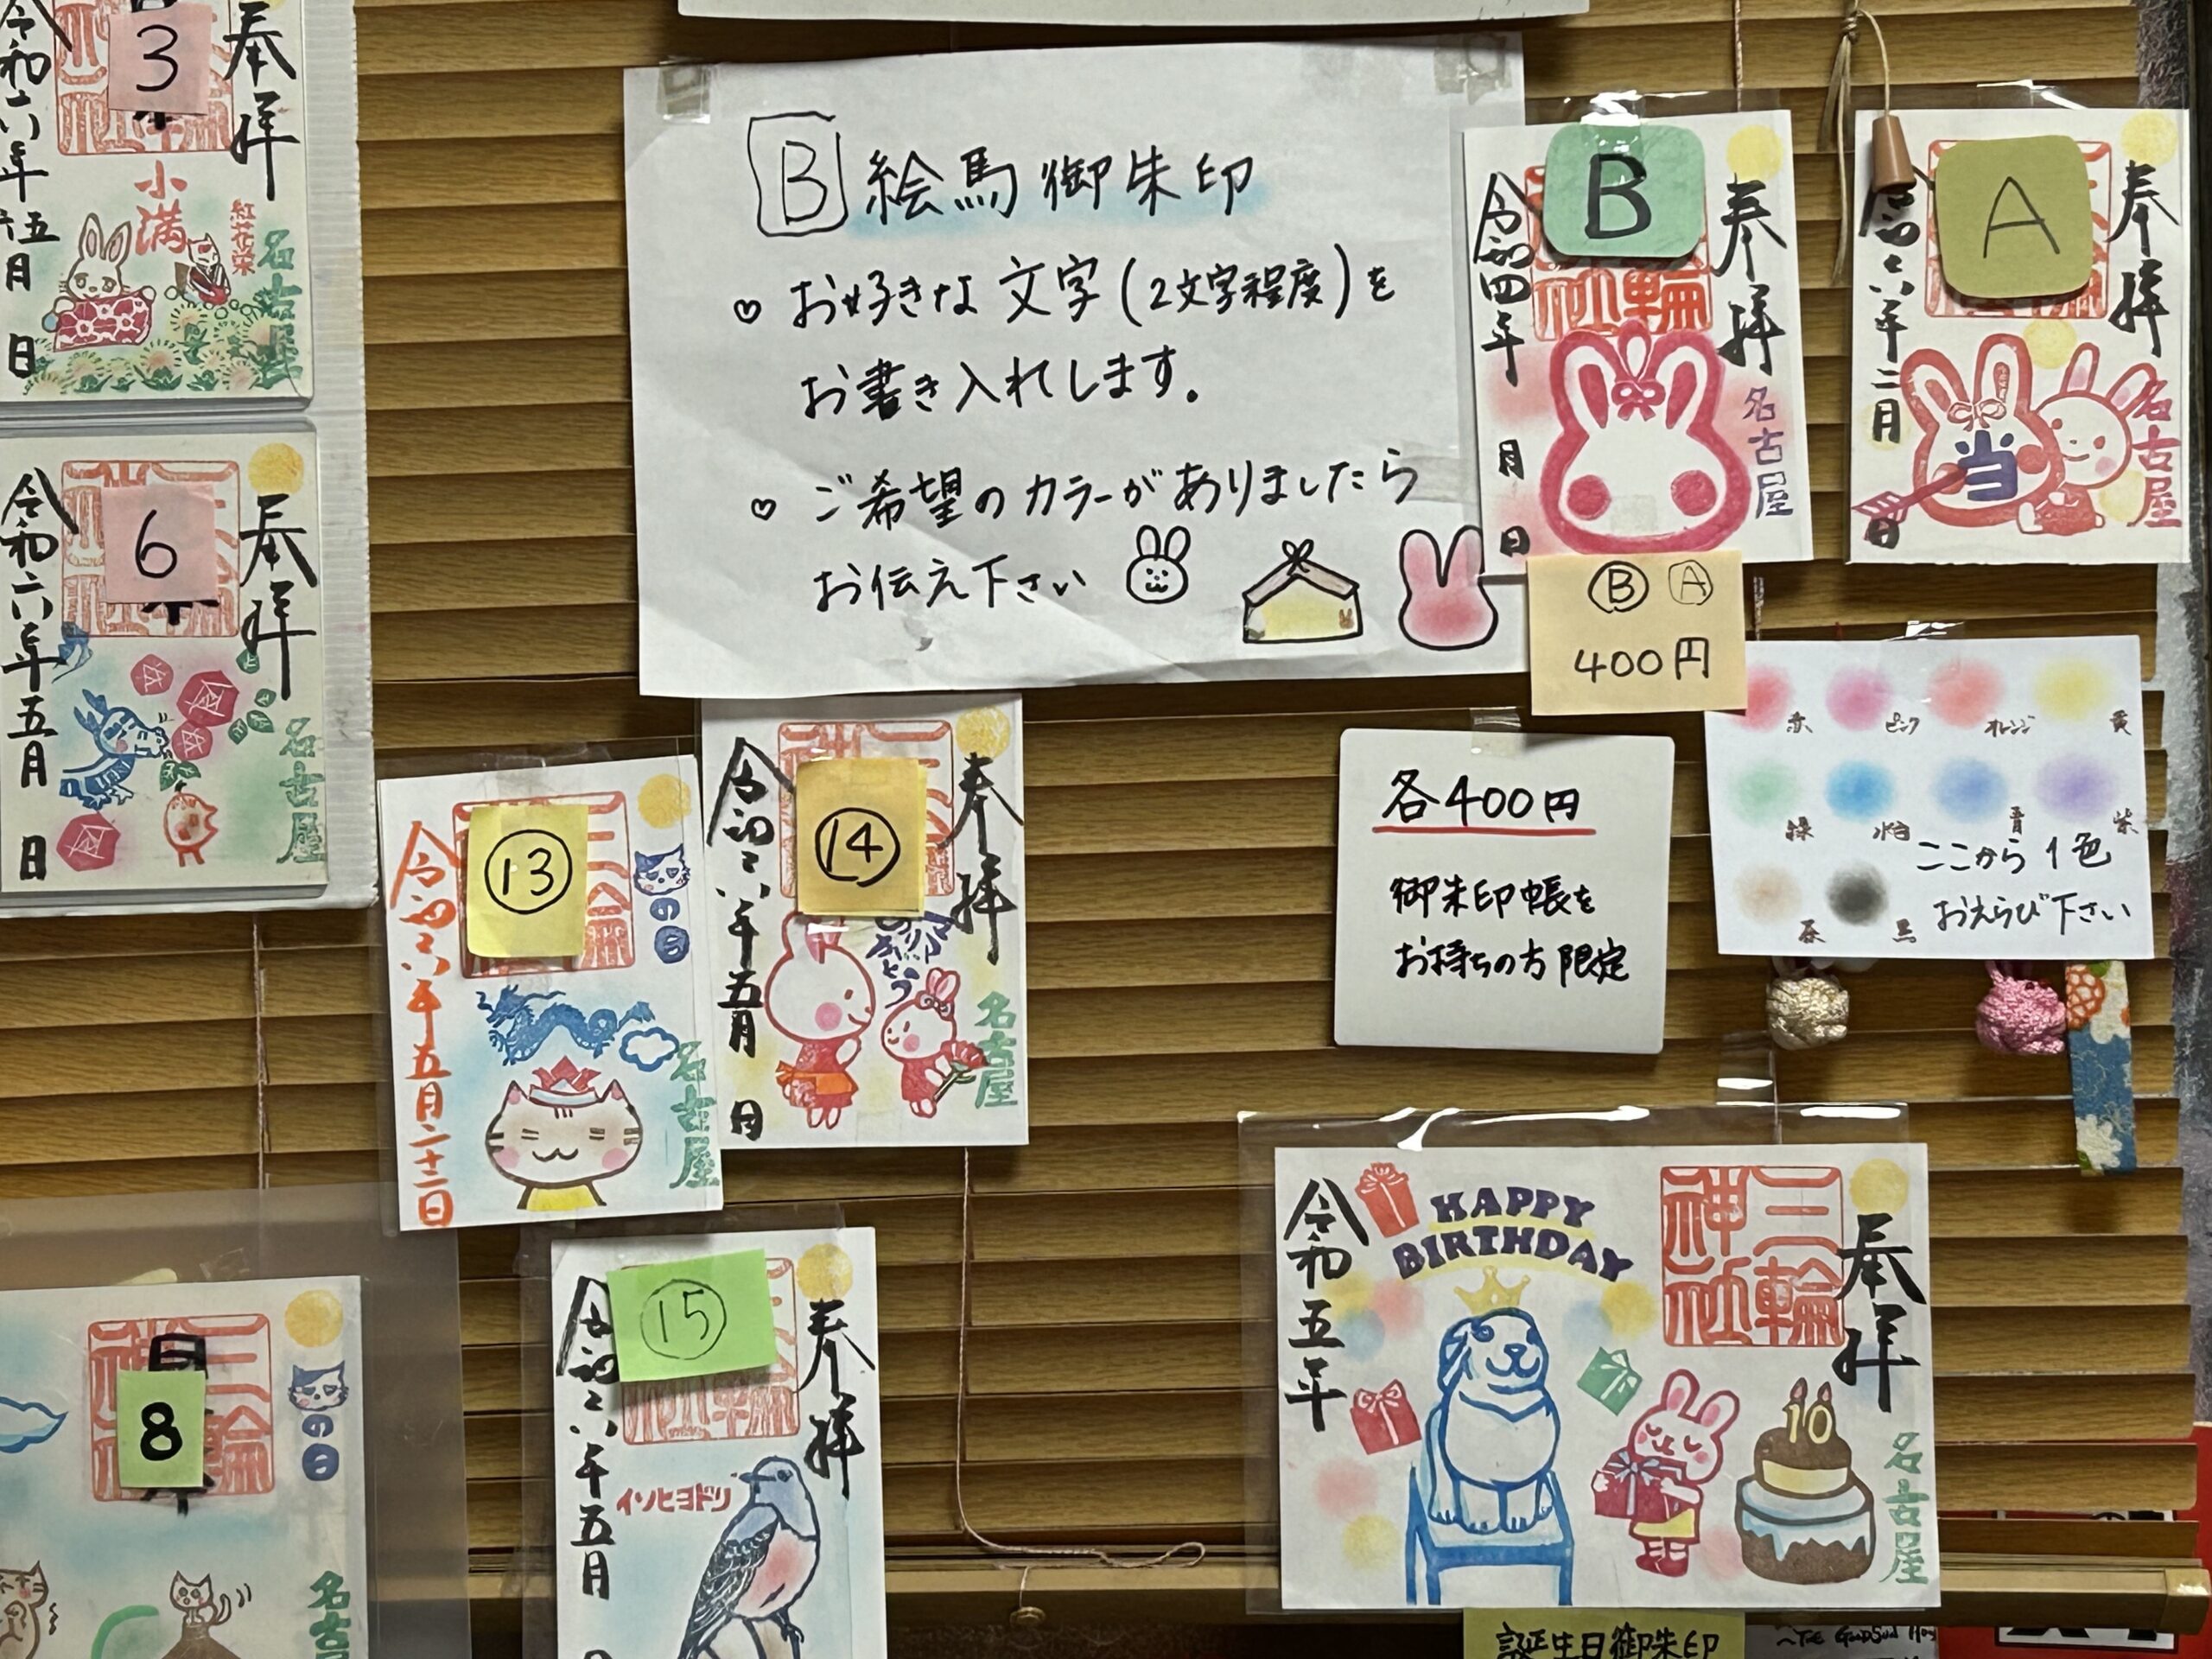 3
奉拝
令和六年
五月
六
日
小満
紅花栄
名古屋
6
奉拝
令和六年五月
日
名古屋
B 絵馬御朱印
♡ お好きな文字(2文字程度)を
お書き入れします。
♡ ご希望のカラーがありましたら
お伝え下さい
B
奉拝
令和四年
月
日
名古屋
A
奉拝
令和六年二月
日
当
名古屋
Ⓑ Ⓐ
400円
赤 ピンク オレンジ 黄
緑 水色 青 紫
茶 黒
ここから1色
おえらび下さい
各400円
御朱印帳を
お持ちの方限定
⑬
の日
令和六年五月二十二日
名古屋
⑭
奉拝
令和六年五月
日
名古屋
8
三輪神社
の日
名古屋
⑮
奉拝
令和六年五月
イソヒヨドリ
奉拝
三輪神社
HAPPY
BIRTHDAY
令和五年
10
名古屋
誕生日御朱印